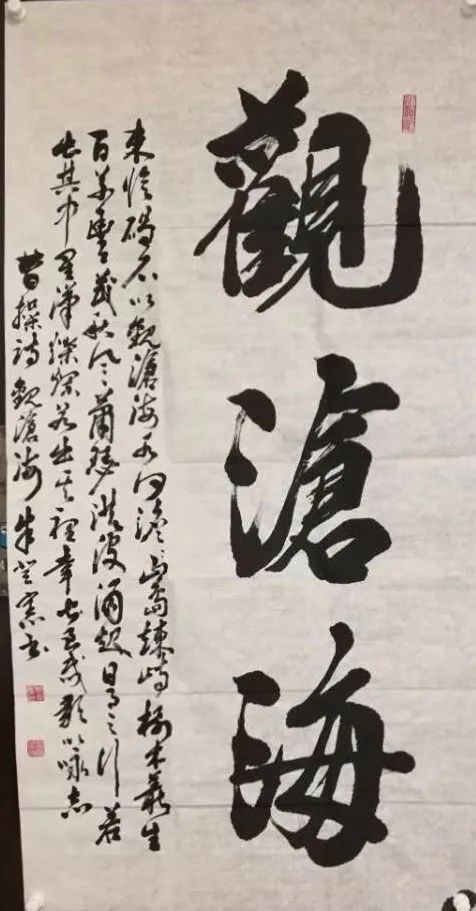 觀滄海
東臨碣石以觀滄海水何澹々山島竦峙樹木叢生
百草豐茂秋風蕭瑟洪波涌起日月之行若
出其中星漢燦爛若出其裡幸甚至哉歌以詠志
曹操詩觀滄海 朱登憲书